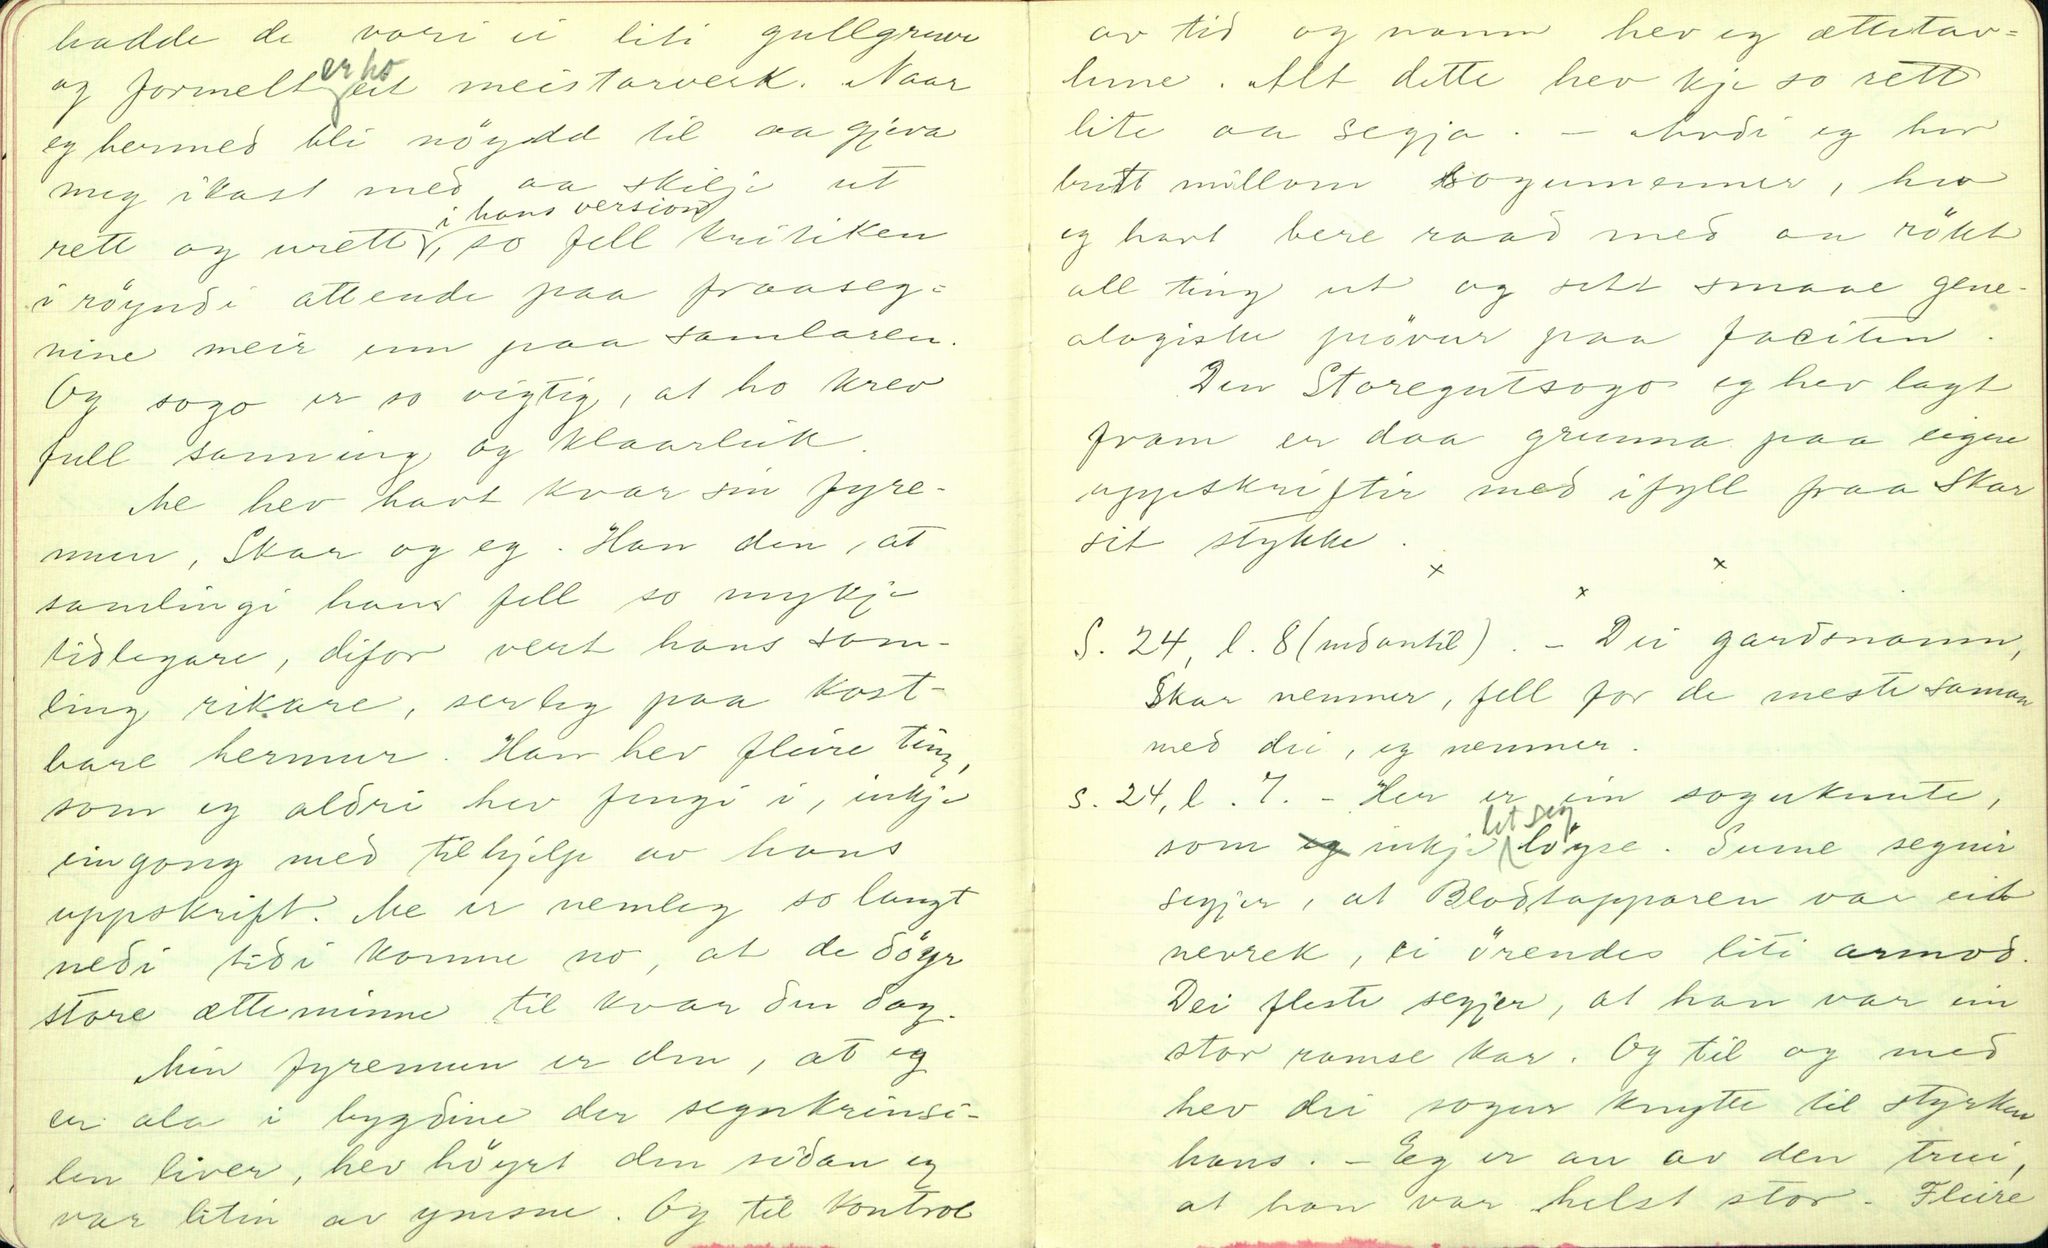 hadde de vori ei liti gullgruve
og formelt er ho eit meistarverk. Naar
eg hermed bli nöydd til aa gjeva
meg ikast med aa skilje ut
rett og urett i hans version, so fell kritiken
i röyndi attende paa fraaseg-
nine meir enn paa samlaren.
Og sogo er so vigtig, at ho krev
full sanning og klaarleik.
Me hev havt kvar sin fyre-
mun, Skar og eg. Han den, at
samlingi hans fell so mykje
tidlegare, difor vert hans sam-
ling rikare, serleg paa kost-
bare hermur. Han hev fleire ting,
som eg aldri hev fengi i, inkje
eingong med tilhjelp av hans
uppskrift. Me er nemleg so langt
nedi tidi komne no, at de döyr
store ætteminne til kvar den dag.
Min fyremun er den, at eg
er ala i bygdine der segnkrinsi-
len liver, hev höyrt den sidan eg
var liten av ymsne. Og til kontrol
av tid og namn hev eg ættetav-
lune. Alt dette hev kje so rett
lite aa segja. – Avdi eg hev
butt millom sogumenner, hev
eg havt bere raad med aa rökt
all ting ut og sett smaae gene-
alogiske prövur paa faciten.
Den Storegutsogo eg hev lagt
fram er daa grunna paa eigne
uppskriftir med ifyll fraa Skar
sit stykke.
x x x
S. 24, l. 8 (nedantil). – Dei gardsnamn,
Skar nemner, fell for de meste saman
med dei, eg nemner.
S. 24, l. 7. – Her er ein soguknute,
som eg inkje let seg löyse. Sume segner
segjer, at Blodtapparen var eit
nevrek, ei örende liti armod.
Dei fleste segjer, at han var ein
stor ramse kar. Og til og med
hev dei sogur knytte til styrken
hans. – Eg er an av den trui,
at han var helst stor. Fleire